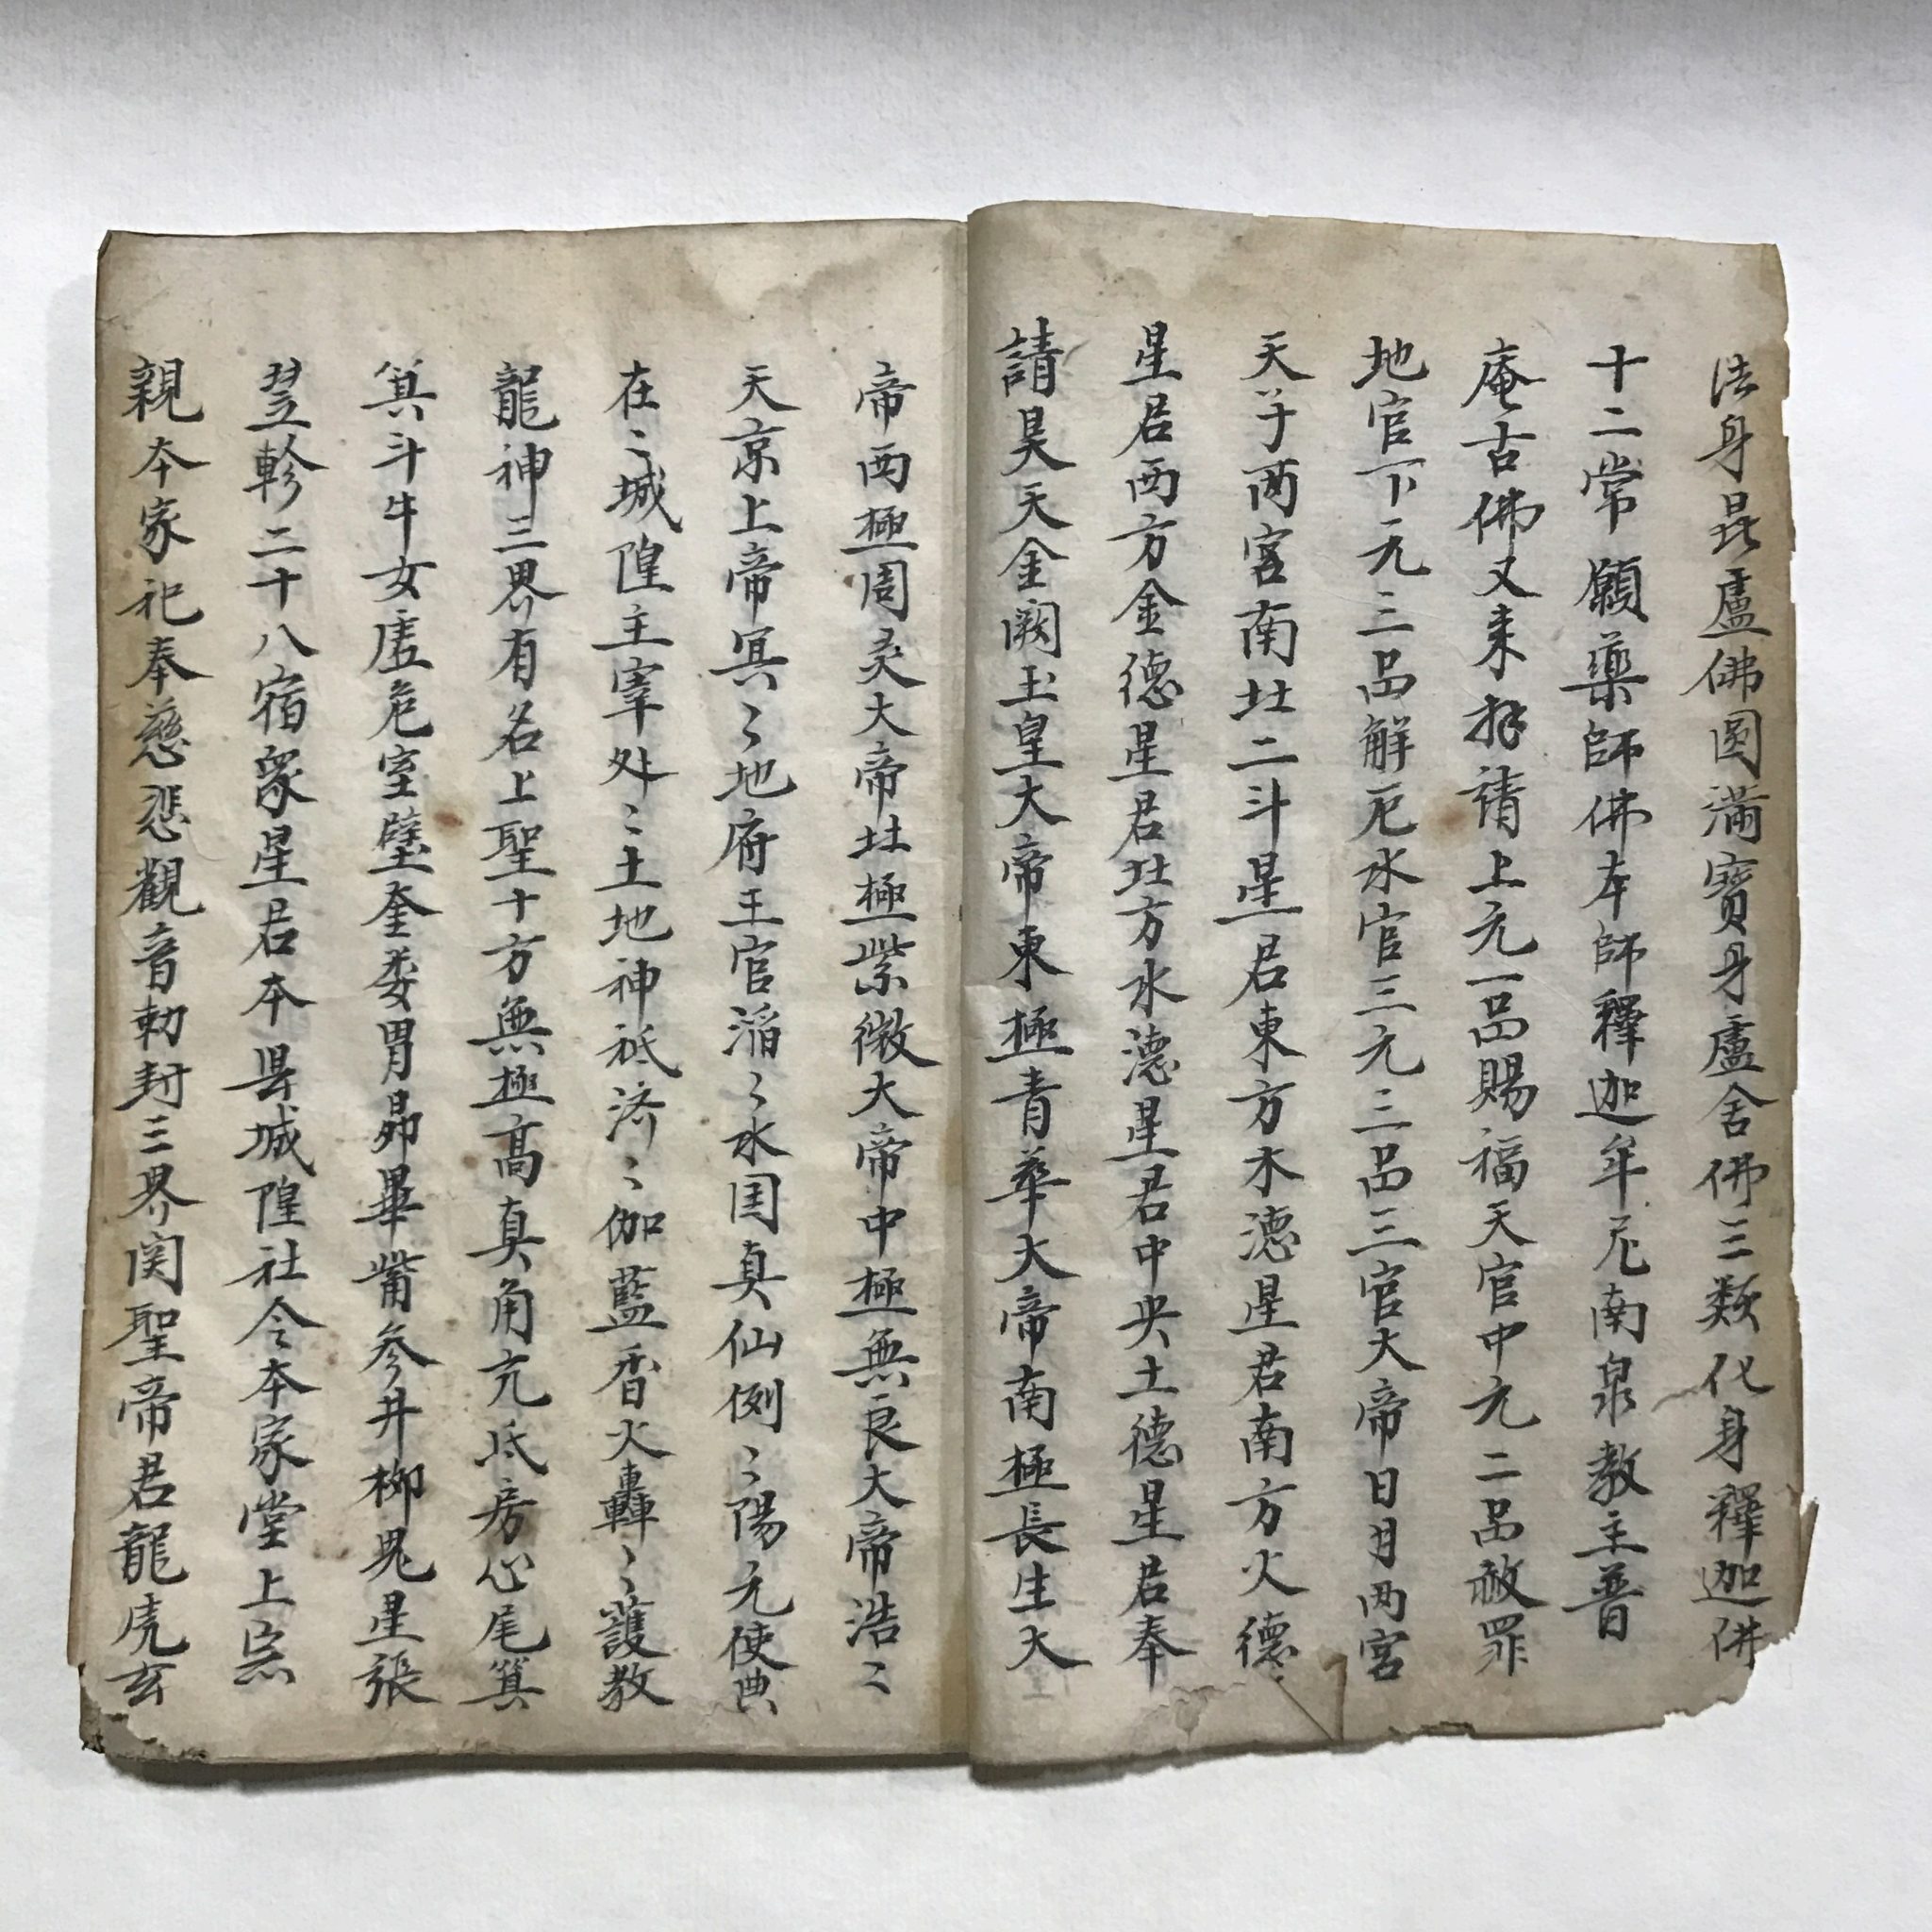 法身毘盧佛圓滿寶身盧舍佛三類化身釋迦佛
十二常願藥師佛本師釋迦牟尼南泉教主普
庵古佛又来拜请上元一品賜福天官中元二品赦罪
地官下元三品解厄水官三元三品三官大帝日月兩宮
天子兩宮南北二斗星君東方木德星君南方火德
星君西方金德星君北方水德星君中央土德星君奉
請昊天金阙玉皇大帝東極青華大帝南極長生大
帝西極周灵大帝北極紫微大帝中極無良大帝浩〻
天京上帝冥〻地府王官滔〻水国真仙例〻陽元使典
在〻城隍主宰处〻土地神祇济〻伽藍香火轟〻護教
龍神三界有名上聖十方無極高真角亢氐房心尾箕
箕斗牛女虚危室壁奎娄胃昴畢觜参井柳鬼星張
翌軫二十八宿眾星君本县城隍社令本家堂上宗
親本家祀奉慈悲觀音勅封三界関聖帝君龍虎玄